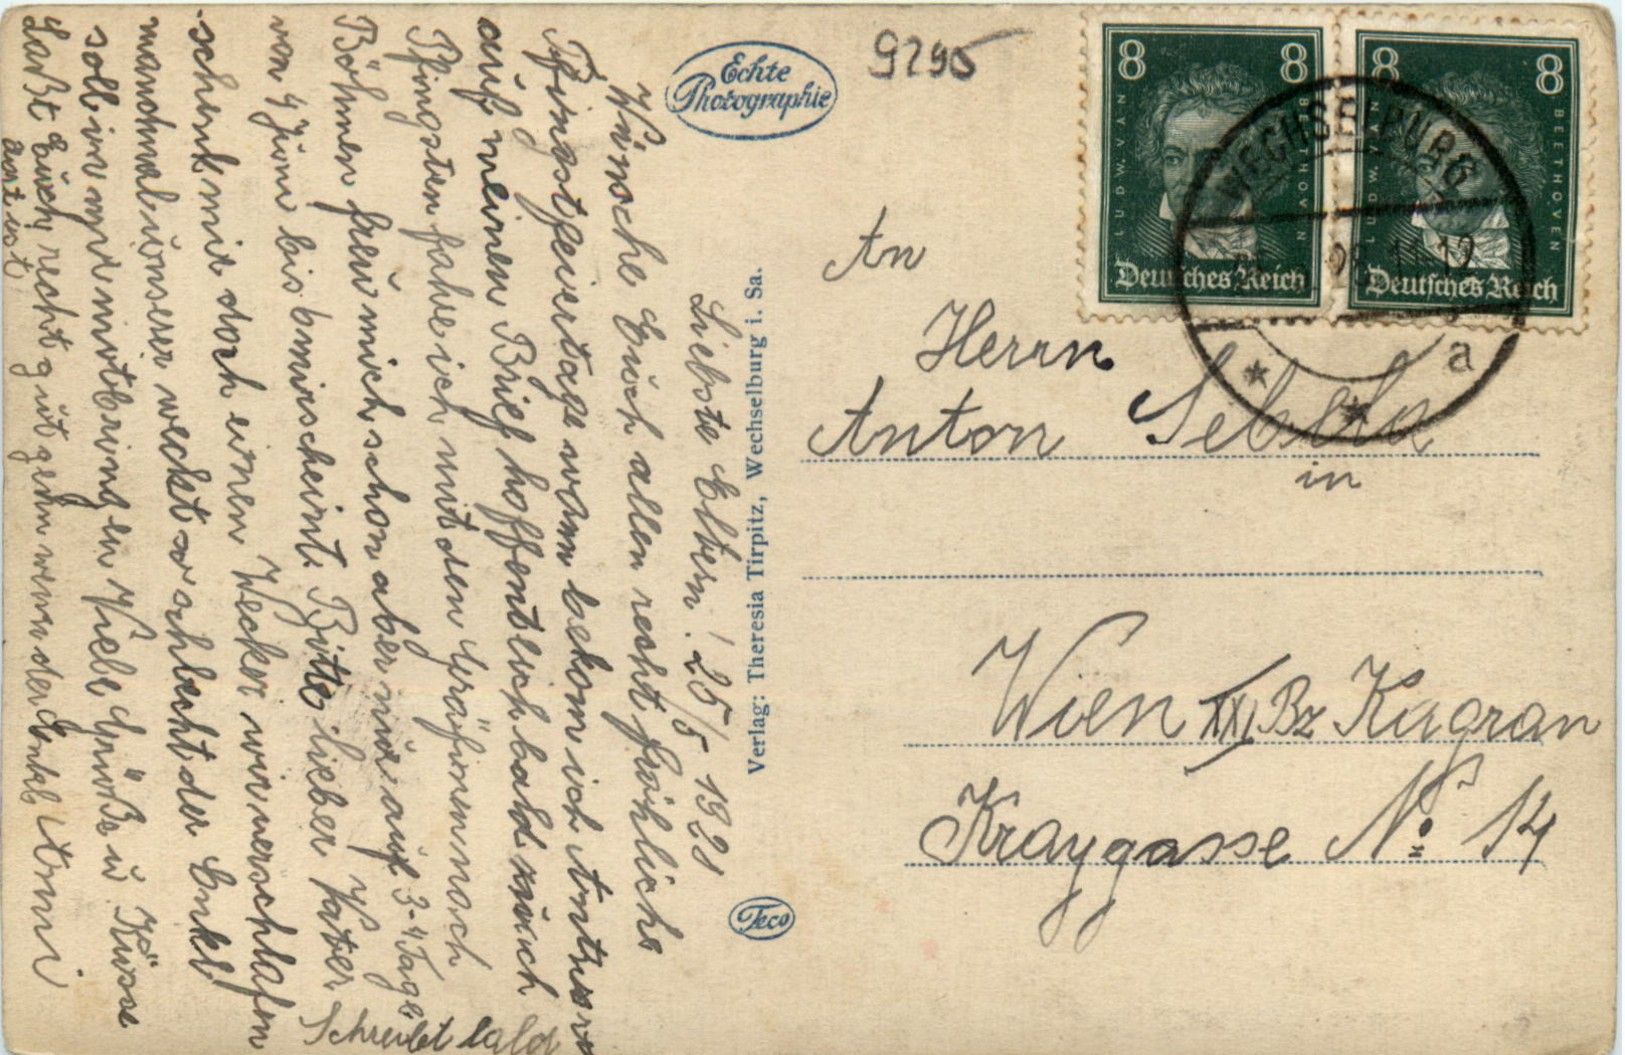 Liebste Eltern! 25/5 1928
Wünsche Euch allen recht fröhliche
Pfingstfeiertage wann bekom ich Antwort
auf meinen Brief hoffentlich bald nach
Pfingsten fahre ich mit den Gräfinnen nach
Böhmen freu mich schon aber nur auf 3-4 Tage
von 4 Juni bis 6 mir scheint. Bitte lieber Vater
schenk mir doch einen Wecker wir verschlafen
manchmal unserer weckt so schlecht der Onkl
soll in mir mitbringen Viele Grüße u Küsse
Laßt Euch recht gut gehn wenn der Onkl
dort ist Toni
Schreibt bald
Echte
Photographie
Verlag: Theresia Tirpitz, Wechselburg i. Sa.
Teco
9295
8 8
LUDW. VAN BEETHOVEN
Deutsches Reich
8 8
LUDW. VAN BEETHOVEN
Deutsches Reich
WECHSELBURG
11-12
a
An
Herrn
Anton
in
Wien XXI Bz Kagran
Kraygasse No 14